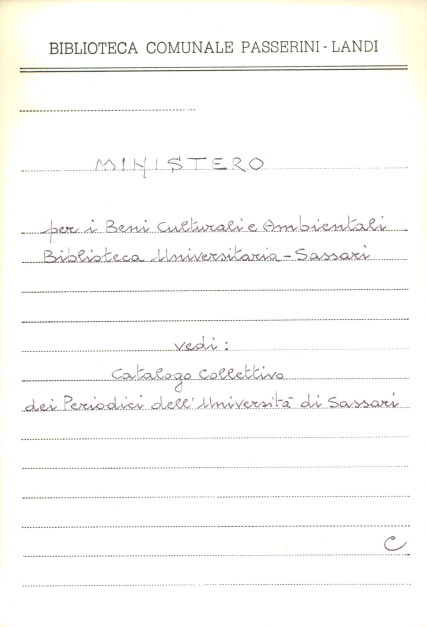 BIBLIOTECA COMUNALE PASSERINI - LANDI
MINISTERO
per i Beni Culturali e Ambientali
Biblioteca Universitaria - Sassari
vedi:
Catalogo Collettivo
dei Periodici dell'Università di Sassari
C